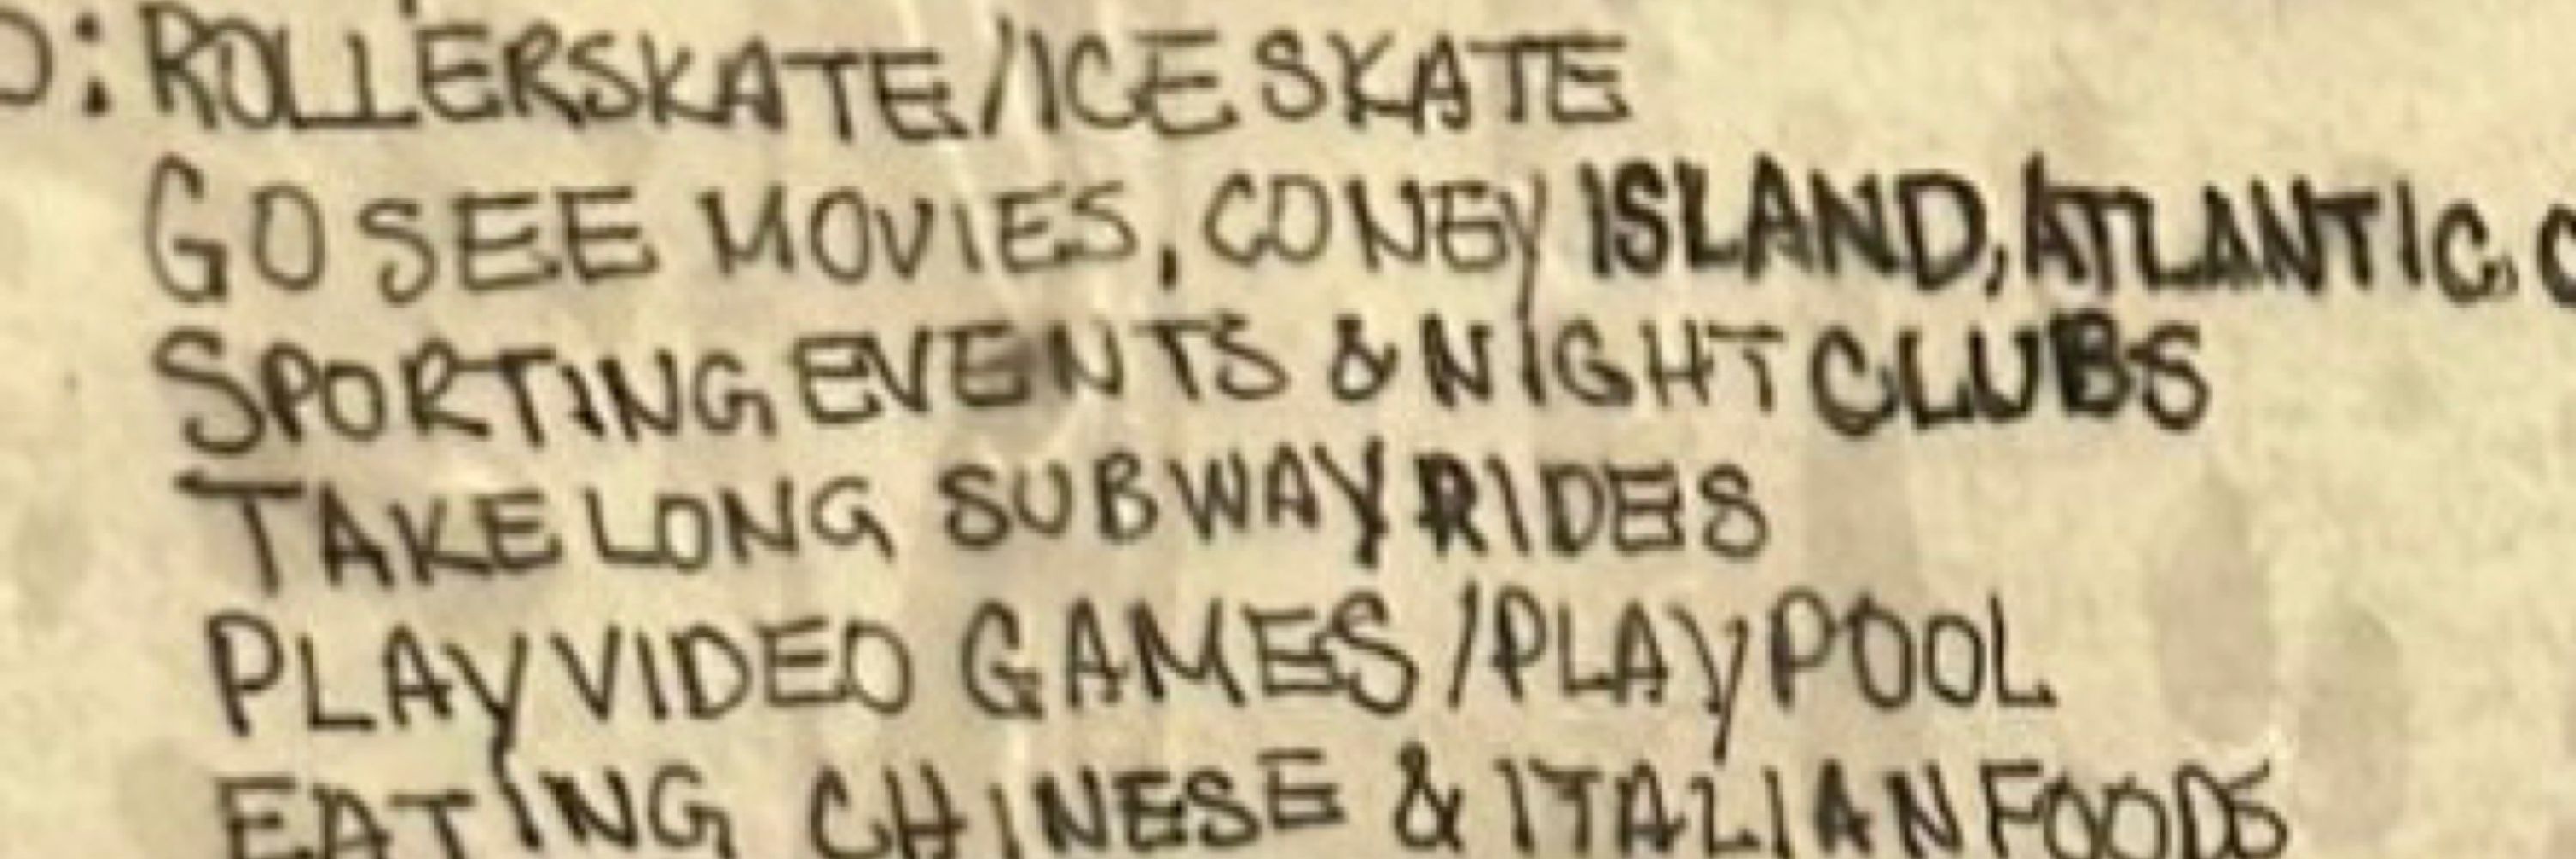 : ROLLERSKATE/ICE SKATE
GO SEE MOVIES, CONEY ISLAND, ATLANTIC
SPORTING EVENTS & NIGHT CLUBS
TAKE LONG SUBWAY RIDES
PLAY VIDEO GAMES / PLAY POOL
EATING CHINESE & ITALIAN FOODS